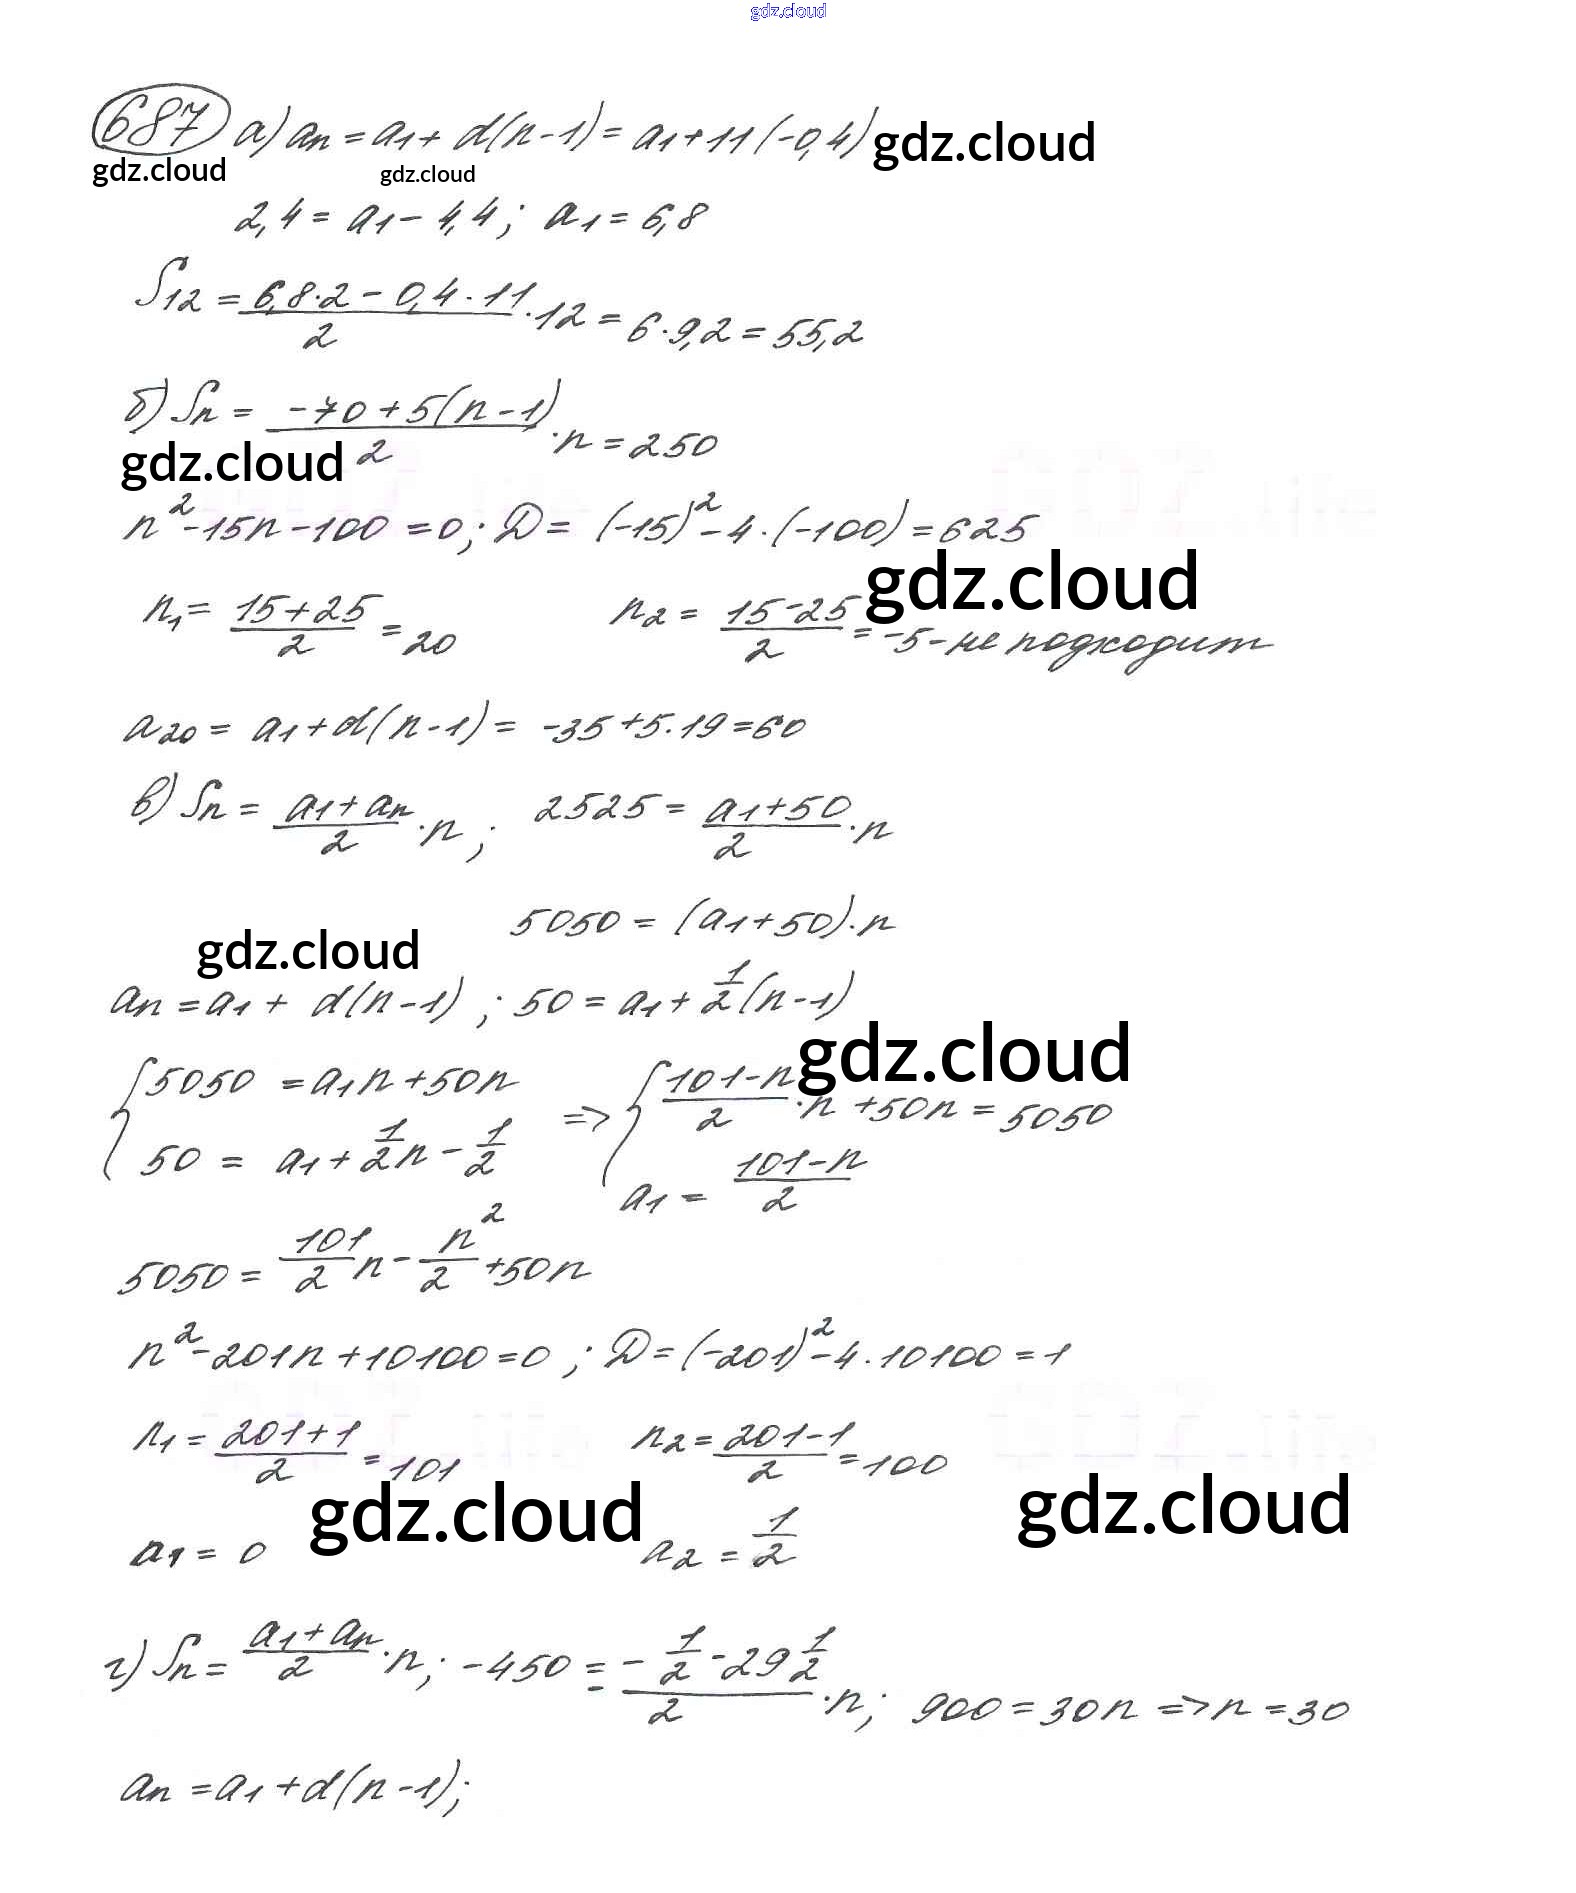 gdz.cloud
687 а) an = a1 + d(n-1) = a1 + 11(-0,4) gdz.cloud
gdz.cloud gdz.cloud
2,4 = a1 - 4,4; a1 = 6,8
S12 = (6,8·2 - 0,4·11)/2 · 12 = 6·9,2 = 55,2
б) Sn = (-70 + 5(n-1))/2 · n = 250
gdz.cloud
n² - 15n - 100 = 0; D = (-15)² - 4·(-100) = 625
gdz.cloud
n1 = (15+25)/2 = 20 n2 = (15-25)/2 = -5 - не подходит
a20 = a1 + d(n-1) = -35 + 5·19 = 60
в) Sn = (a1 + an)/2 · n; 2525 = (a1 + 50)/2 · n
5050 = (a1 + 50)·n
gdz.cloud
an = a1 + d(n-1); 50 = a1 + 1/2(n-1)
gdz.cloud
{5050 = a1n + 50n => {(101-n)/2 · n + 50n = 5050
50 = a1 + 1/2n - 1/2 a1 = (101-n)/2
5050 = 101/2 n - n²/2 + 50n
n² - 201n + 10100 = 0; D = (-201)² - 4·10100 = 1
n1 = (201+1)/2 = 101 n2 = (201-1)/2 = 100
gdz.cloud gdz.cloud
a1 = 0 a2 = 1/2
г) Sn = (a1 + an)/2 · n; -450 = (-1/2 - 29 1/2)/2 · n; 900 = 30n => n = 30
an = a1 + d(n-1);